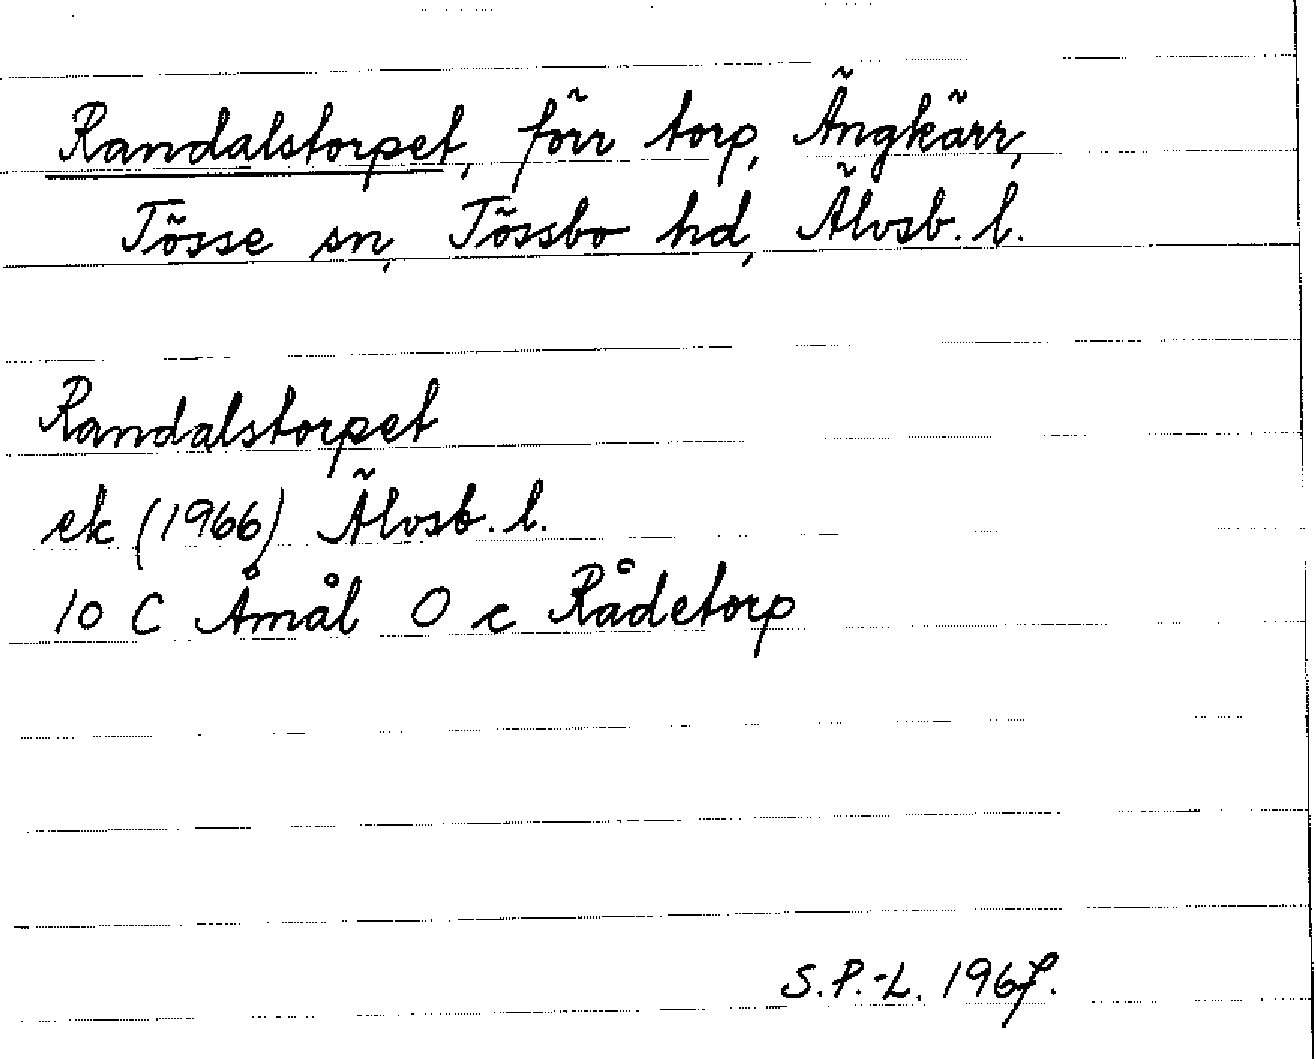 Randalstorpet, förr torp, Ängkärr,
Tösse sn, Tössbo hd, Älvsb. l.
Randalstorpet
ek (1966) Älvsb. l.
10 C Åmål O c Rådetorp
S.P.-L. 1967.